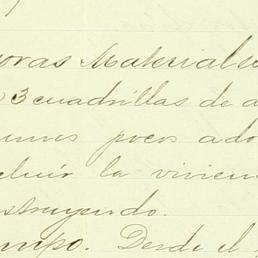 oras Materiales
3 cuadrillas de a
unos pocos ado
cluir la vivien
struyendo.
mpo. Desde el